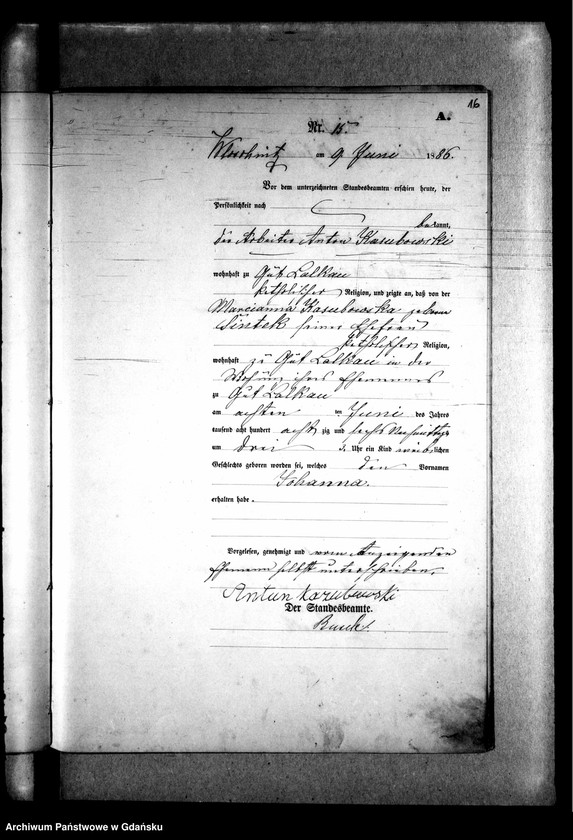 16
A.
Nr. 15.
am 9 Juni 1886.
Vor dem unterzeichneten Standesbeamten erschien heute, der
Persönlichkeit nach
bekannt,
der Arbeiter Anton Kasubowski
wohnhaft zu Gut Lalkau
katholischer Religion, und zeigte an, daß von der
Marcianna Kasubowska geborne
seiner Ehefrau
katholischer Religion,
wohnhaft zu Gut Lalkau in der
Wohnung ihres Ehemannes
zu Gut Lalkau
am achten ten Juni des Jahres
tausend acht hundert achtzig und sechs Nachmittags
um drei Uhr ein Kind weiblichen
Geschlechts geboren worden sei, welches den Vornamen
Johanna.
erhalten habe.
Vorgelesen, genehmigt und vom Anzeigenden
Ehemann selbst unterschrieben.
Antun Kazubowski
Der Standesbeamte.
Archiwum Państwowe w Gdańsku